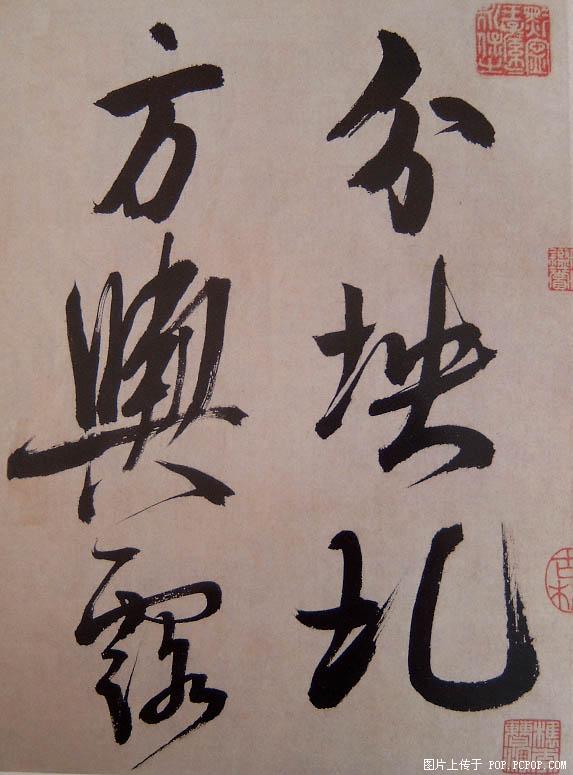 分坱圠
方輿露
图片上传于 POP.PCPOP.COM